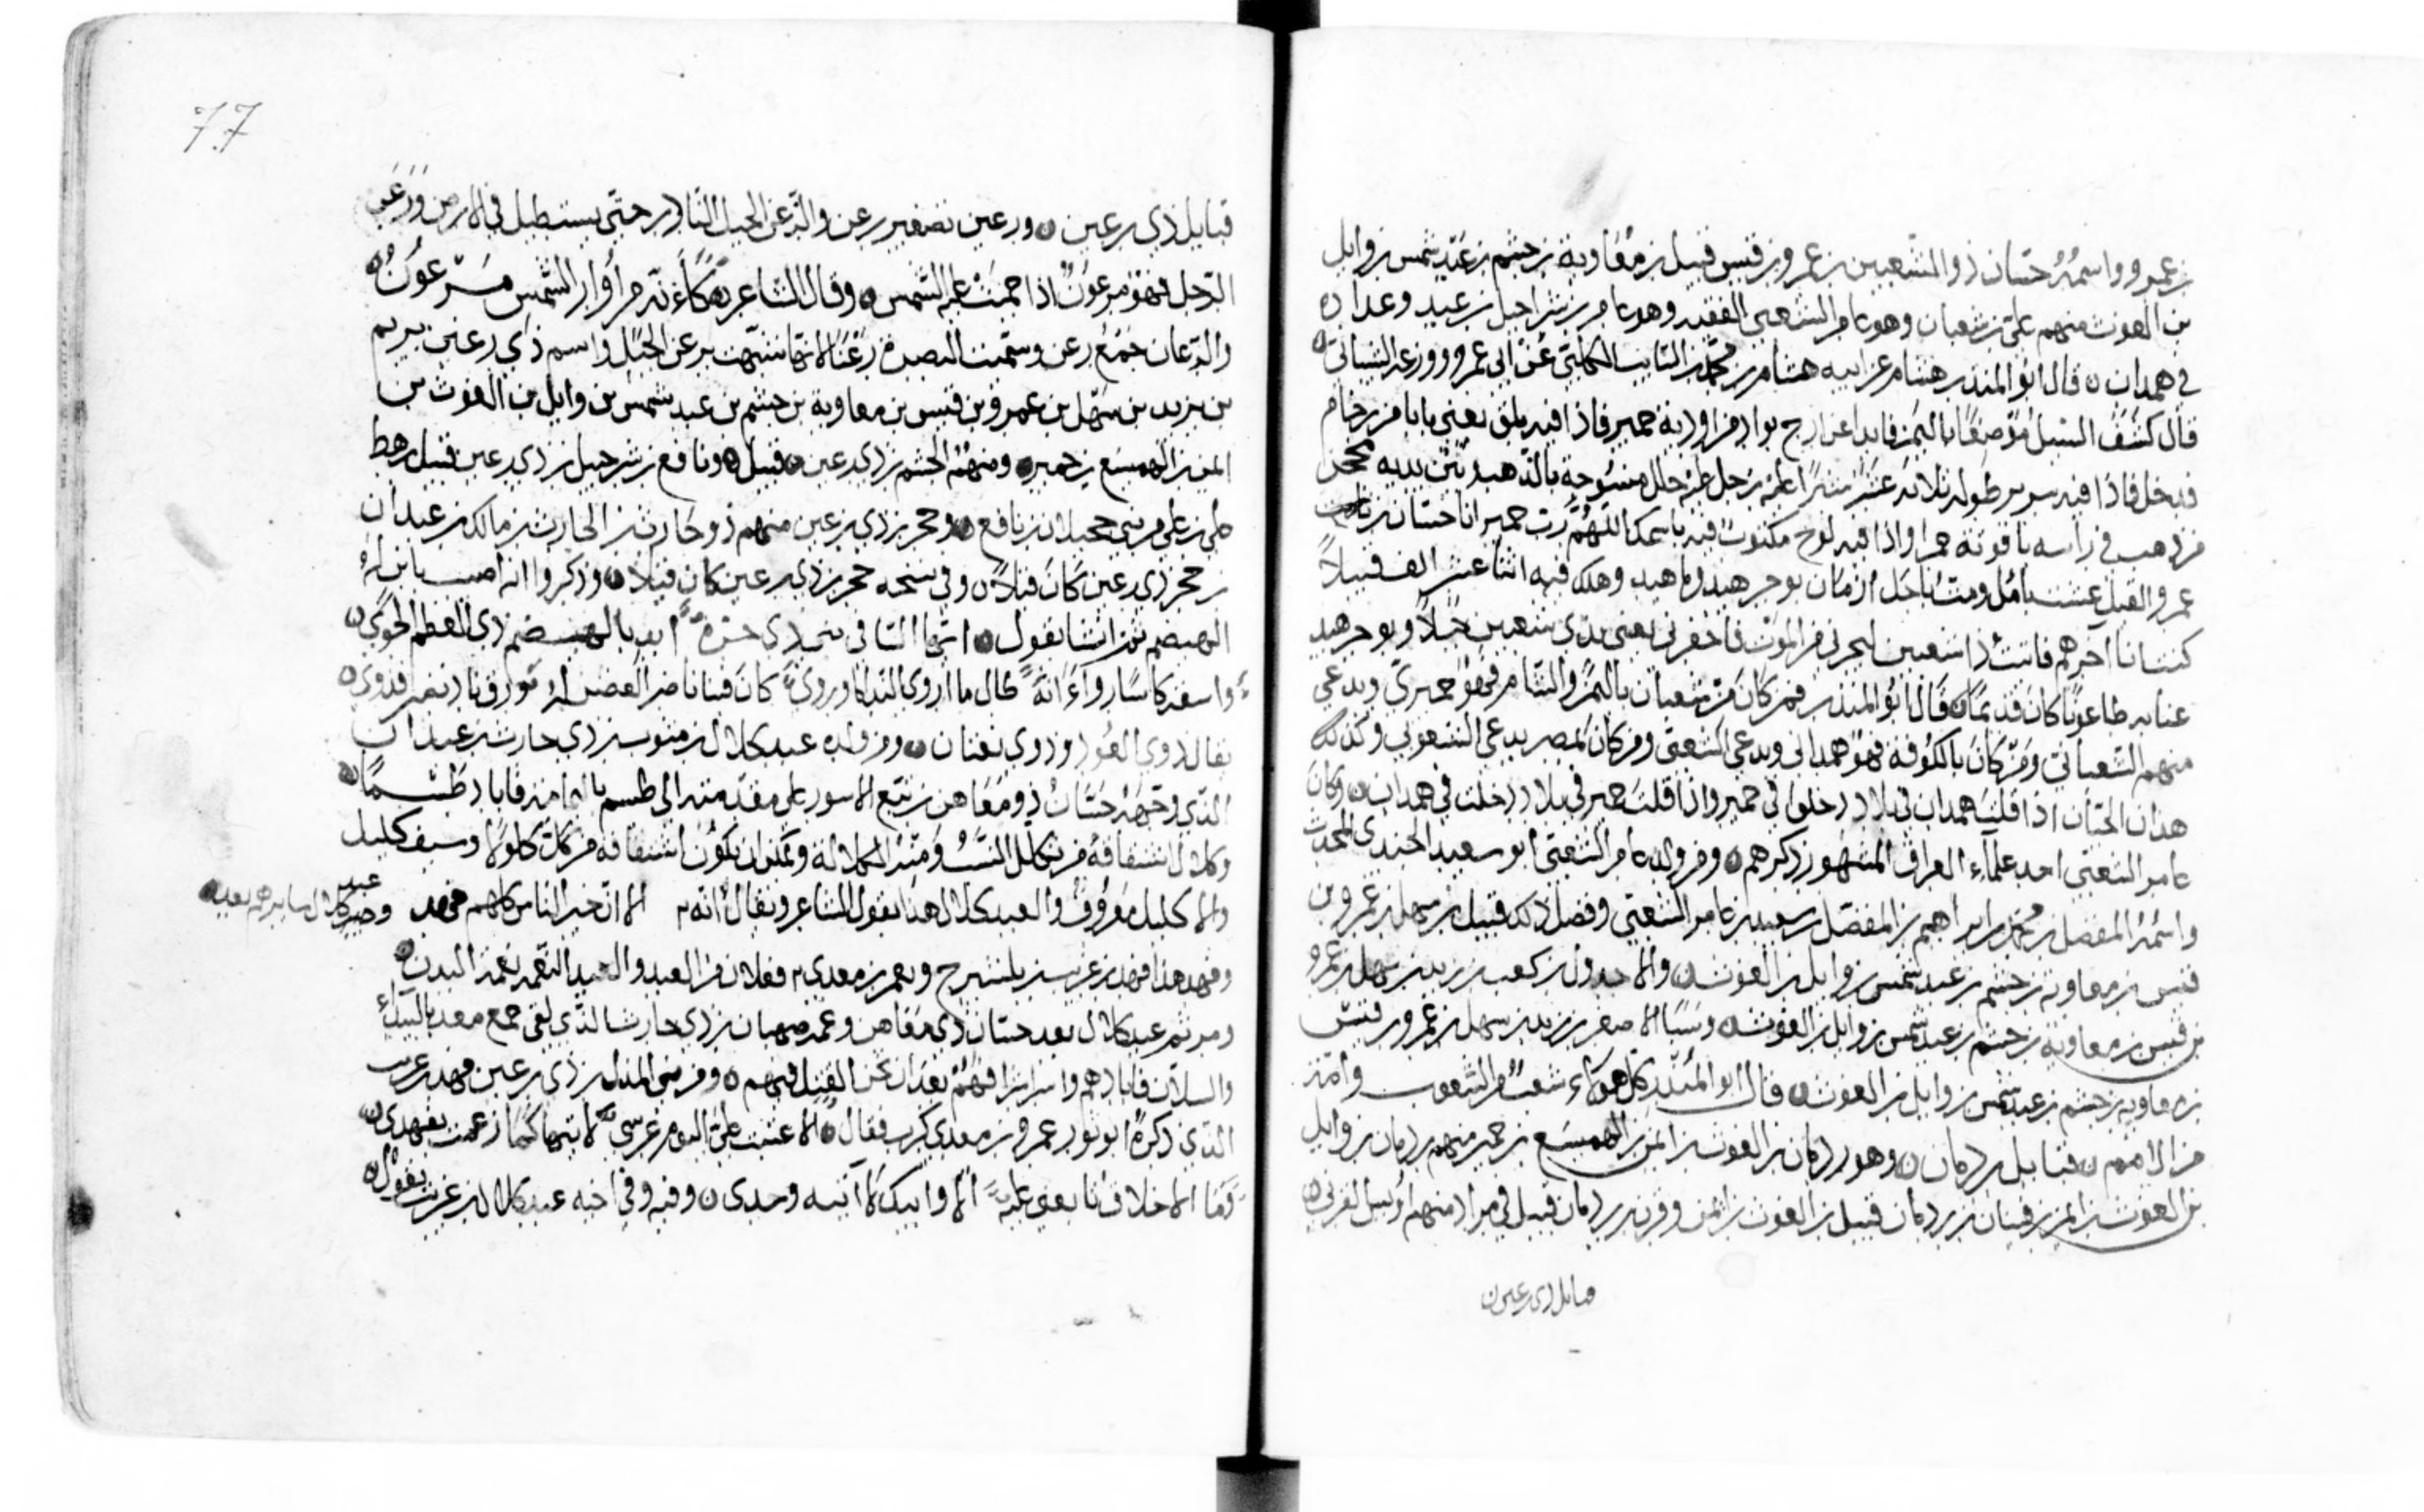 بن عمرو واسمه حسان ذو الشعبين بن عمرو بن قيس قبيل بن معاوية بن جشم بن عبد شمس بن وايل
بن الغوث منهم علي بن شعبان وهو عامر الشعبي الفقيه وهو عامر بن شراحيل بن عبيد وعداده
في همدان قال ابو المنذر هشام عن ابيه هشام بن محمد بن السايب الكلبي عن ابي عمرو وزرعة السيباني
قال كشف السيل باليمن فابدا عن ازج بواد من اودية حمير فاذا فيه بلق يعني بابا من رخام
فدخل فاذا فيه سرير طوله ثلاثة عشر شبرا عليه رجل عليه حلل منسوجة بالذهب بين يديه محجن
من ذهب في راسه ياقوتة حمرا واذا فيه لوح مكتوب فيه باسمك اللهم رب حمير انا حسان بن
عمرو القيل عشت بامل ومت باجل ازمان بوخر هيد وما هيد وهلك فيه اثنا عشر الف قيلا
كنت انا اخرهم فاتيت ذا شعبين ليجرني من الموت فاخفرني يعني بذي شعبين جبلا وبوخر هيد
عنا به طاعونا كان قديما قال ابو المنذر فمن كان من شعبان باليمن والشام فهو حميري ويدعى
منهم الشعباني ومن كان بالكوفة فهو همداني ويدعى الشعبي ومن كان بمصر يدعى الشعوبي وكذلك
هذان الحيان اذا قلت همدان في بلاد دخلوا في حمير واذا قلت حمير في بلاد دخلت في همدان وكان
عامر الشعبي احد علماء العراق المشهور ذكرهم ومن ولد عامر الشعبي ابو سعيد الجندي المحدث
واسمه المفضل بن محمد بن ابراهيم بن المفضل بن سعيد بن عامر الشعبي وفضل ذلك قبيل بن سهل بن عمرو بن
قيس بن معاوية بن جشم بن عبد شمس بن وايل بن الغوث والاحدول بن كعب بن زيد بن سهل بن عمرو
بن قيس بن معاوية بن جشم بن عبد شمس بن وايل بن الغوث وسبا الاصغر بن زيد بن سهل بن عمرو بن قيس
بن معاوية بن جشم بن عبد شمس بن وايل بن الغوث قال ابو المنذر كل هولاء شعب من الشعوب وامة
من الامم قبايل ردمان وهو ردمان بن الغوث بن ايمن بن الهميسع بن حمير منهم ردمان بن وايل
بن الغوث بن ايمن بن قينان بن ردمان قبيل بن الغوث بن ايمن وقرن بن ردمان قبيل في مراد منهم اويس القرني
قبايل ذي رعين
77
قبايل ذي رعين ورعين تصغير رعن والرعن الجبل النادر حتى يستطيل في الارض ورعن
الرجل فهو مرعون اذا حميت عليه الشمس وقال الشاعر كانه من اوار الشمس مرعون
والرعان جمع رعن وسميت البصرة رعنا لانها شبهت برعن الجبل واسم ذي رعين يريم
بن يزيد بن سهل بن عمرو بن قيس بن معاوية بن جشم بن عبد شمس بن وايل بن الغوث بن
ايمن بن الهميسع بن حمير ومنهم الجشم بن ذي رعين قبيل ونافع بن شرحبيل بن ذي رعين قبيل رهط
علي بن علي من بني حجيلان بن نافع وحجر بن ذي رعين منهم ذو حارث بن الحارث بن مالك بن عبدان
بن حجر ذي رعين كان قيلا وفي نسخه حجر بن ذي رعين كان قيلا وذكروا انه اصيب بابن له
الهيضم ثم انشا يقول ايها الساقي بني ذي ابد بالهيضم ذي العظم الجوي
واسقه كاسا رواء انه طال ما اروى الندامى وروي كان فينا ناضر الغصن له نورق ناد نضير فذوي
يقال ذوي العود وذوى لغتان ومن ولده عبد كلال بن مثوب بن ذي حارث بن عبدان
الذي وجهه حسان ذو معاهن بن تبع الاسود على مقدمته الى طسم باليمامة فاباد طسما
وكلال اشتقاقه من تكلل النسب ومنه الكلالة ويمكن ان يكون اشتقاقه من كل كلولا وسيف كليل
والاكليل معروف والعبد كلال هذا يقول الشاعر ويقال انه الا ان خير الناس كلهم فهد وعبد كلال خير سايرهم بعد
وفهد هذا فهد بن عريب بن يليشرح وبعمر بن معدي فعلان من العبد والعبد النغمة نغمة البدن
ومر ثم عبد كلال بعد حسان ذي معاهن وعمه صهبان بن ذي حارث الذي لقي جمع معد بالبيداء
والسلان فابادهم واسر اشرافهم بعد ان نحن القتل فيهم ومن بني المذل بن ذي رعين فهد بن عريب
الذي ذكره ابو ثور عمرو بن معدي كرب فقال الا عتبت علي اليوم عرسي لاتيها كما زعمت بفهد
وما الاخلاف انا يعني عليه الا وابيك لا اتيه وحدي وفيه وفي اخيه عبد كلال بن عريب يقول